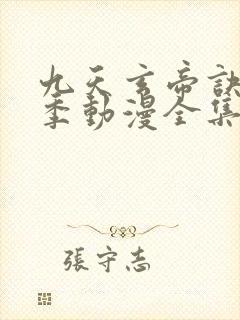 九天玄帝訣
季動漫全集
張守志